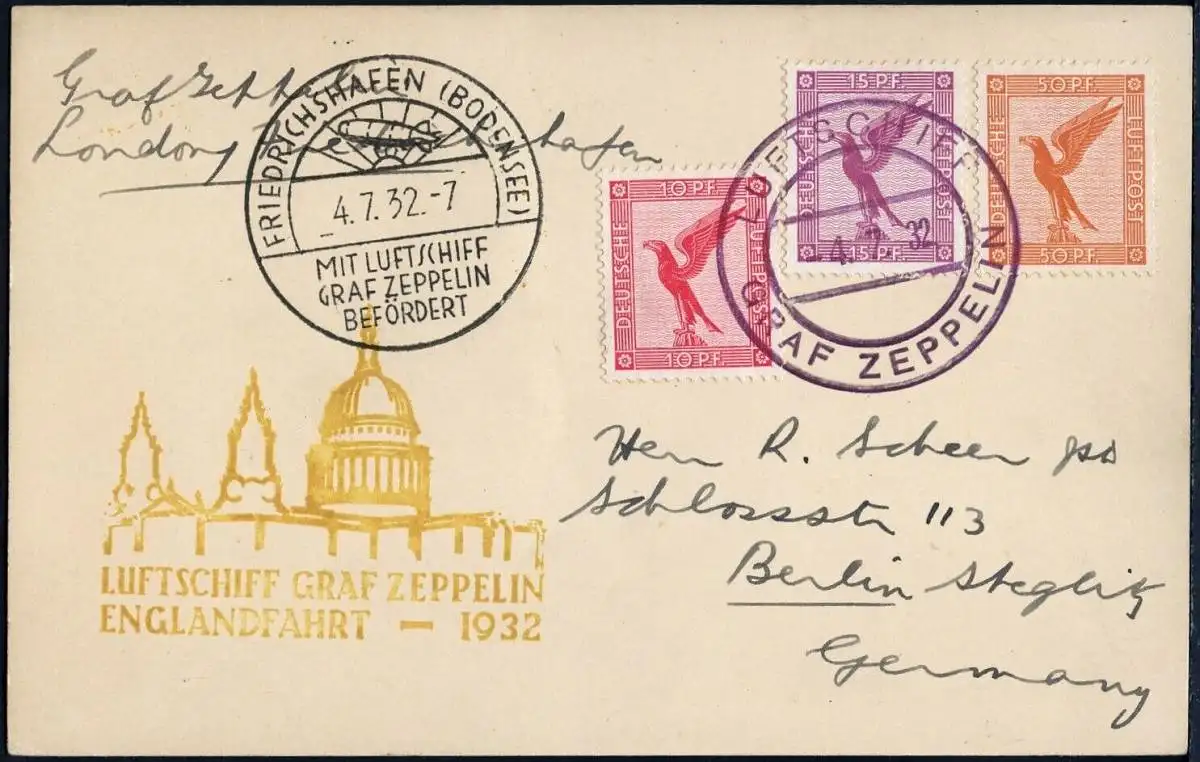 Graf Zeppelin
London, Friedrichshafen
FRIEDRICHSHAFEN (BODENSEE)
4.7.32.-7
MIT LUFTSCHIFF
GRAF ZEPPELIN
BEFÖRDERT
10 PF.
DEUTSCHE
FLUGPOST
10 PF.
15 PF.
DEUTSCHE
FLUGPOST
15 PF.
50 PF.
DEUTSCHE
FLUGPOST
50 PF.
LUFTSCHIFF
4. 7. 32
GRAF ZEPPELIN
LUFTSCHIFF GRAF ZEPPELIN
ENGLANDFAHRT — 1932
Herr R. Scheer
Schlossstr 113
Berlin Steglitz
Germany